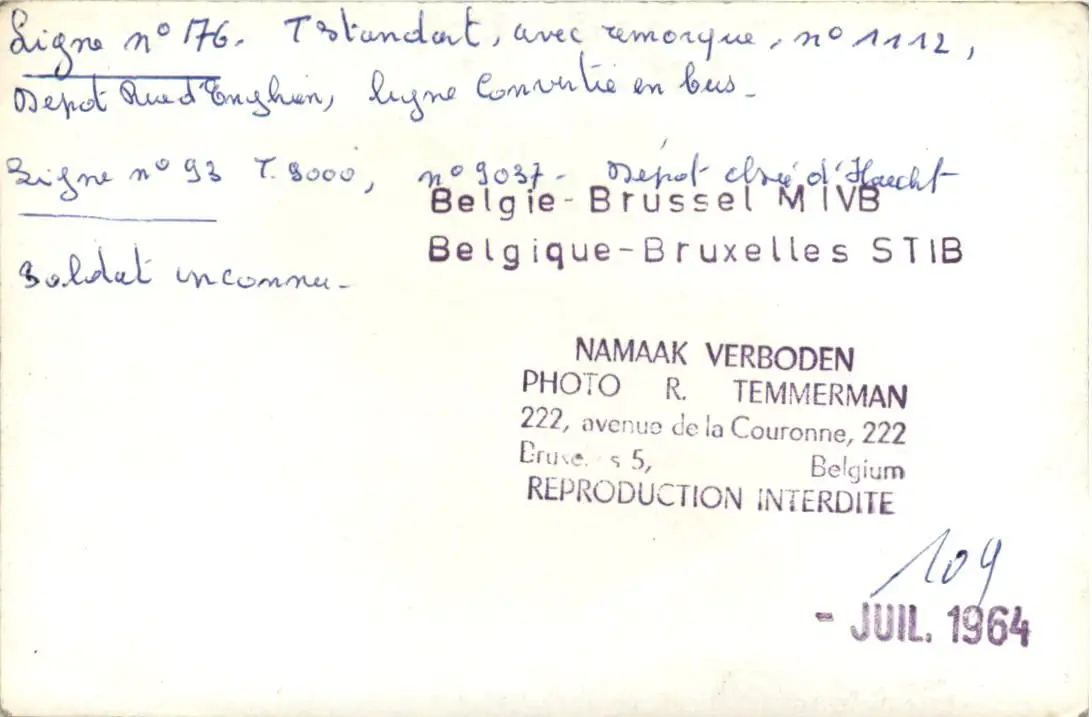 Ligne n° 176. T Standart, avec remorque, n° 1112,
Dépot Rue d'Enghien, ligne Convertie en bus.
Ligne n° 93 T. 9000, n° 9037 - Dépot d'Haecht
Belgie-Brussel MIVB
Belgique-Bruxelles STIB
Soldat inconnu.
NAMAAK VERBODEN
PHOTO R. TEMMERMAN
222, avenue de la Couronne, 222
5, Belgium
REPRODUCTION INTERDITE
109
- JUIL. 1964